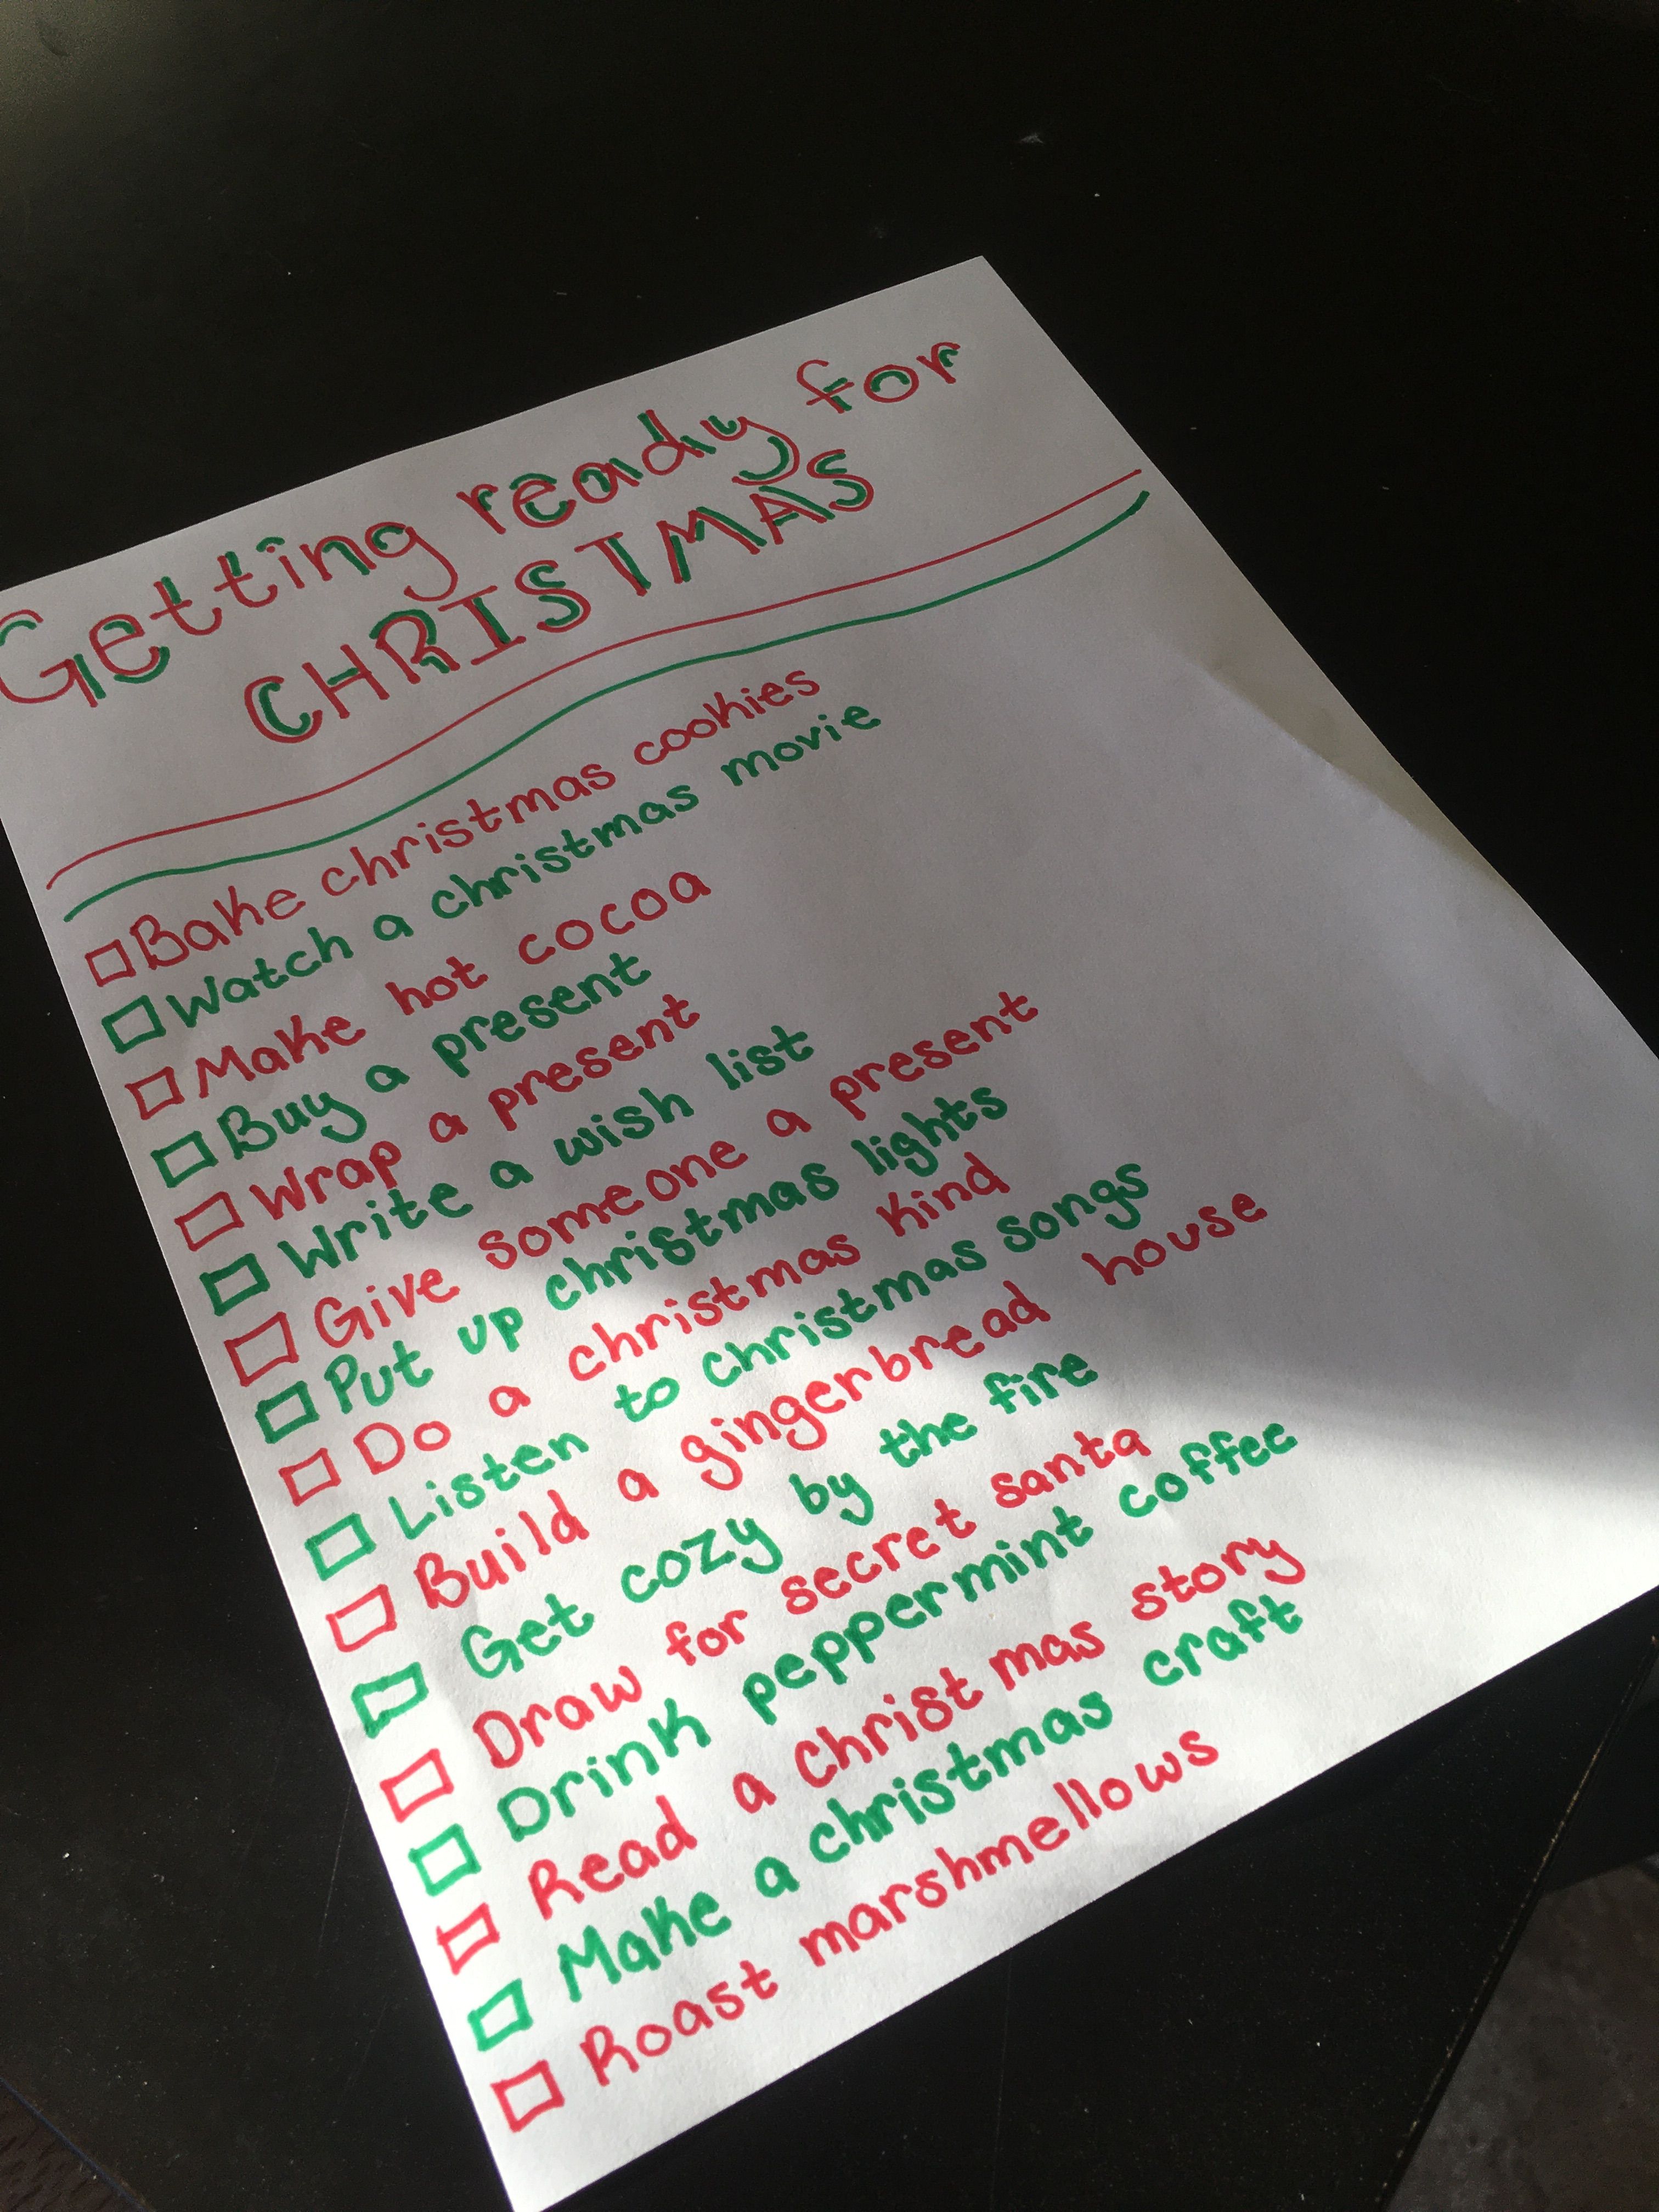 Getting ready for
CHRISTMAS
Bake christmas cookies
Watch a christmas movie
Make hot cocoa
Buy a present
Wrap a present
Write a wish list
Give someone a present
Put up christmas lights
Do a christmas kind
Listen to christmas songs
Build a gingerbread house
Get cozy by the fire
Draw for secret santa
Drink peppermint coffee
Read a Christmas story
Make a christmas craft
Roast marshmellows